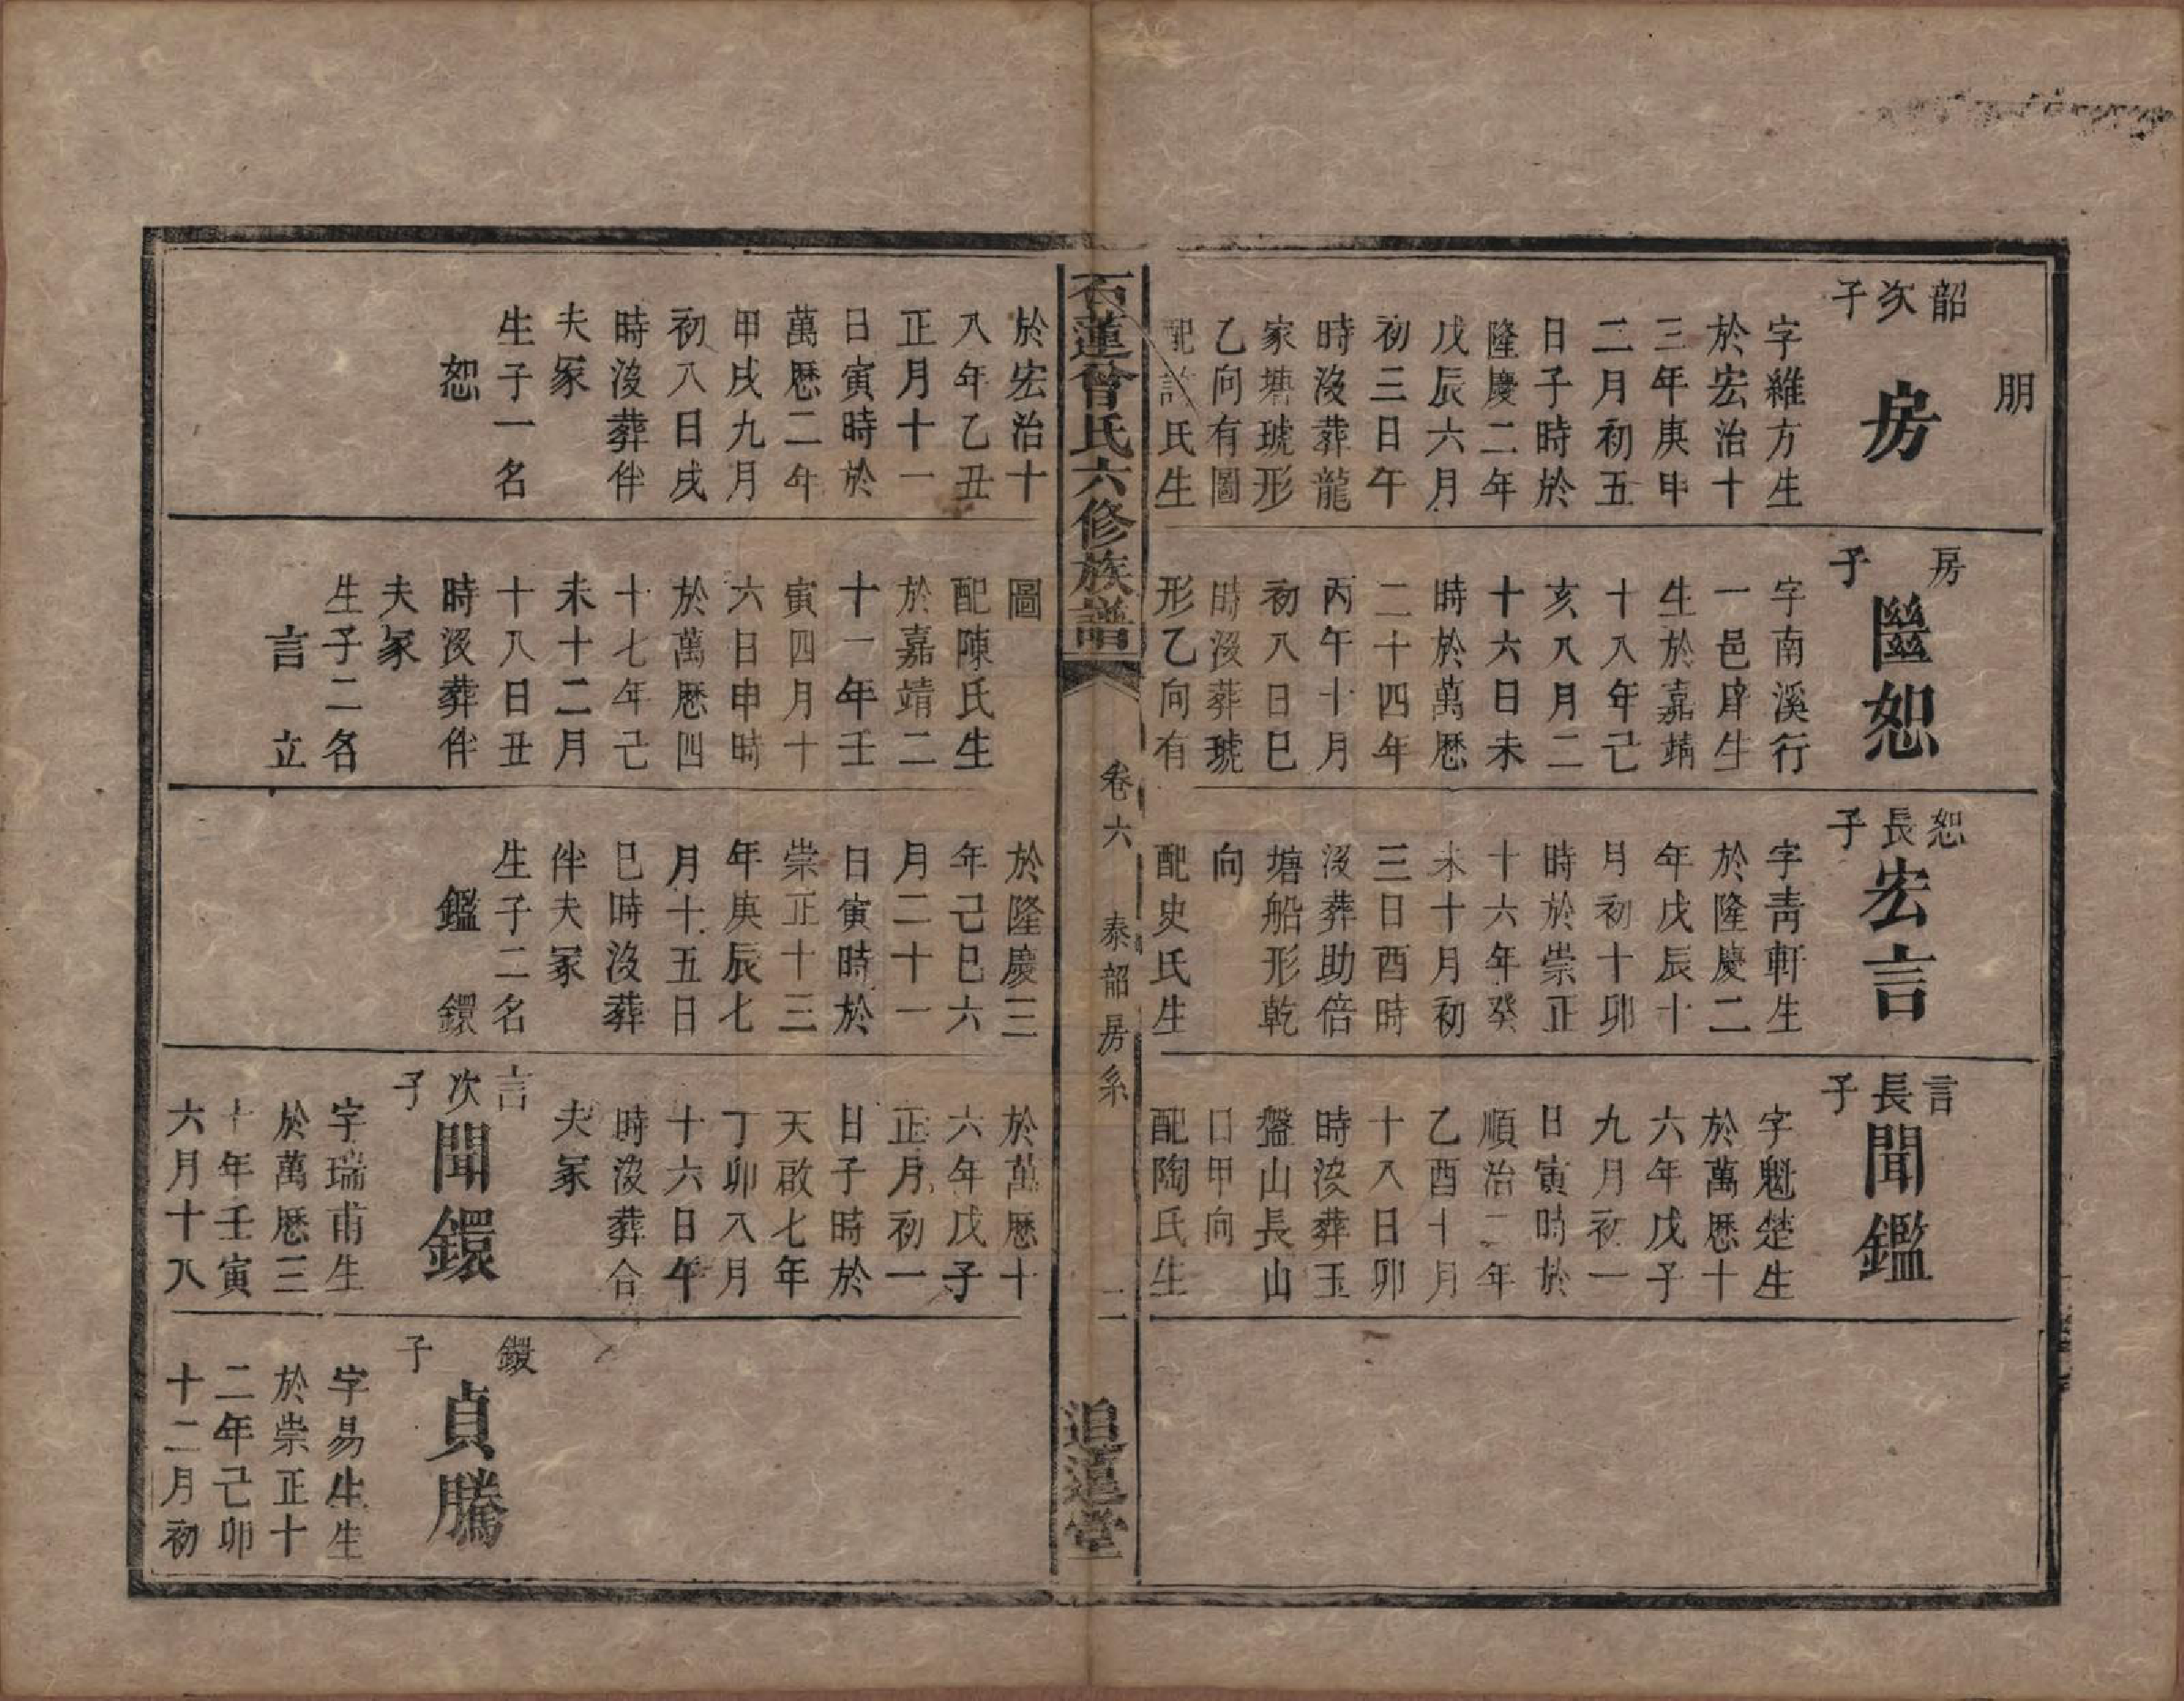 朋
韶次子
房
字維方生
於宏治十
三年庚申
二月初五
日子時於
隆慶二年
戊辰六月
初三日午
時沒葬龍
家塘琥形
乙向有圖
配許氏生
房子
㘭恕
字南溪行
一邑庠生
生於嘉靖
十八年己
亥八月二
十六日未
時於萬厯
二十四年
丙午十月
初八日巳
時沒葬琥
形乙向有
恕長子
宏言
字靑軒生
於隆慶二
年戊辰十
月初十卯
時於崇正
十六年癸
未十月初
三日酉時
沒葬助倍
塘船形乾
向
配史氏生
言長子
聞鑑
字魁楚生
於萬厯十
六年戊子
九月初一
日寅時於
順治二年
乙酉十月
十八日卯
時沒葬玉
盤山長山
口甲向
配陶氏生
石蓮曾氏六修族譜
卷六
泰韶房系
二
追遠堂
於宏治十
八年乙丑
正月十一
日寅時於
萬厯二年
甲戌九月
初八日戌
時沒葬伴
夫冢
生子一名
恕
圖
配陳氏生
於嘉靖二
十一年壬
寅四月十
六日申時
於萬厯四
十七年己
未十二月
十八日丑
時沒葬伴
夫冢
生子二名
言 立
於隆慶三
年己巳六
月二十一
日寅時於
崇正十三
年庚辰七
月十五日
巳時沒葬
伴夫冢
生子二名
鑑 鐶
於萬厯十
六年戊子
正月初一
日子時於
天啟七年
丁卯八月
十六日午
時沒葬合
夫冢
言次子
聞鐶
字瑞甫生
於萬厯三
十年壬寅
六月十八
鐶子
貞騰
字易生生
於崇正十
二年己卯
十二月初